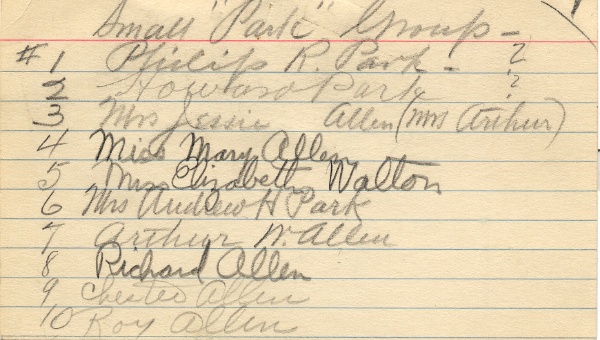 Small "Park" Group -
# 1 Philip R. Park - ?
2 Howard Park ?
3 Mrs Jessie Allen (Mrs Arthur)
4 Miss Mary Allen
5 Miss Elizabeth Walton
6 Mrs Andrew H Park
7 Arthur W. Allen
8 Richard Allen
9 Chester Allen
10 Roy Allen